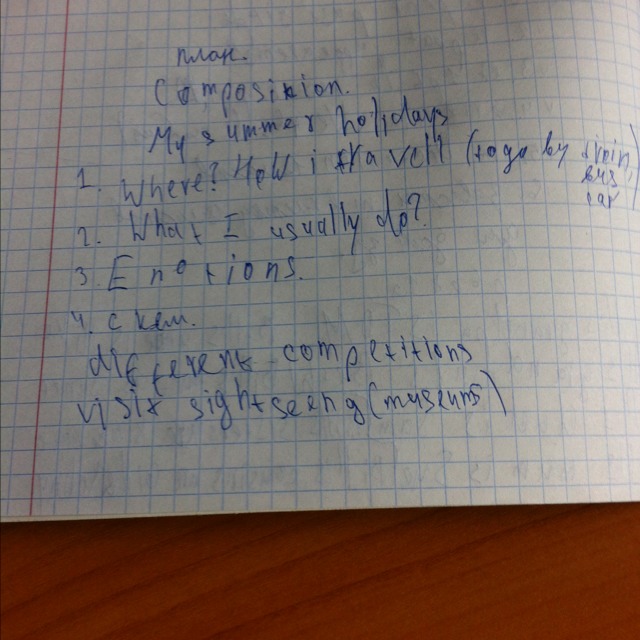 план.
Composition.
My summer holidays
1. Where? How i travell (to go by train,
bus
car)
2. What I usually do?
3. Emotions.
4. с кем.
different competitions
visit sightseeng (museums)